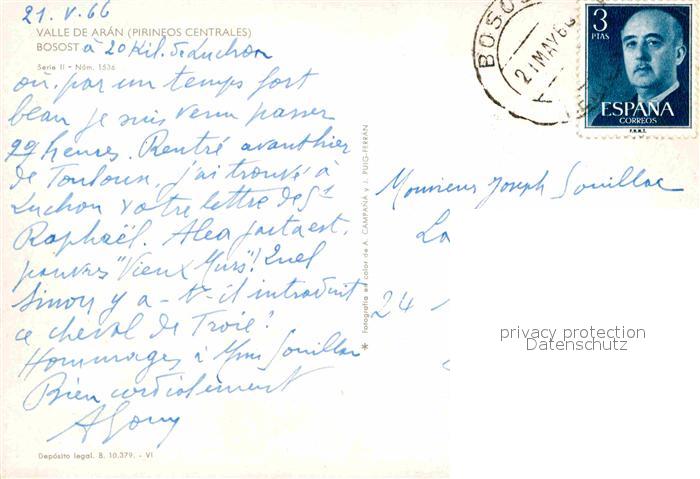 21.V.66
VALLE DE ARÁN (PIRINEOS CENTRALES)
BOSOST à 20 Kil. de Luchon
Serie II - Núm. 1536
où par un temps fort
beau je suis venu passer
heures. Rentré avant hier
de Toulouse, j'ai trouvé à
Luchon votre lettre de St
Raphaël. Alea jacta est.
pauvres "Vieux Murs"! Quel
Sinon y a-t-il introduit
ce cheval de Troie?
Hommages à Mme Souillac
Bien cordialement
Depósito legal. B. 10.379. - VI
Fotografía en color de A. CAMPAÑÁ y J. PUIG-FERRAN
BOSOS
21 MAY 66
3
PTAS
ESPAÑA
CORREOS
F.N.M.T.
Monsieur Joseph Souillac
La
24
privacy protection
Datenschutz